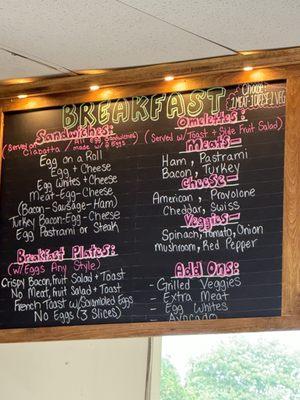 BREAKFAST
Choose:
1 MEAT-1 CHEESE-2 VEG
Sandwiches:
(Served on Ciabatta / All Egg Sandwiches made w/ 2 eggs)
Egg on a Roll
Egg + Cheese
Egg Whites + Cheese
Meat-Egg-Cheese
(Bacon-Sausage-Ham)
Turkey Bacon-Egg-Cheese
Egg Pastrami or Steak
Breakfast Plates:
(w/Eggs Any Style)
Crispy Bacon, fruit Salad + Toast
No Meat, fruit Salad + Toast
French Toast w/Scrambled Eggs
No Eggs (3 Slices)
Omelettes:
(Served w/ Toast + Side Fruit Salad)
Meats-
Ham, Pastrami
Bacon, Turkey
Cheese-
American, Provolone
Cheddar, Swiss
Veggies-
Spinach, Tomato, Onion
Mushroom, Red Pepper
Add Ons:
- Grilled Veggies
- Extra Meat
- Egg Whites
- Avocado